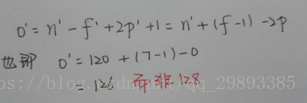 o' = n' - f' + 2p' + 1 = n' + (f - 1) - 2p
也即 o' = 120 + (7-1) - 0
= 126 而非128
https://blog.csdn.net/qq_29893385